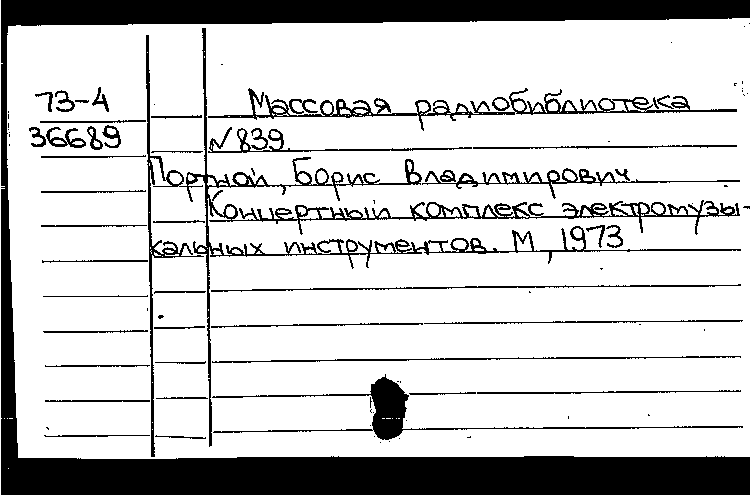 73-4 Массовая радиобиблиотека
36689 N 839.
Портной, Борис Владимирович.
Концертный комплекс электромузы-
кальных инструментов. М, 1973